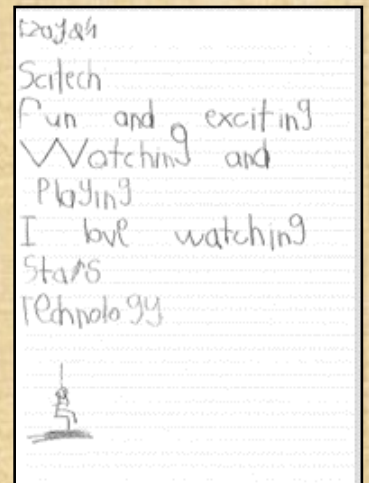 Scitech
Fun and exciting
Watching and
Playing
I love watching
Stars
Technology